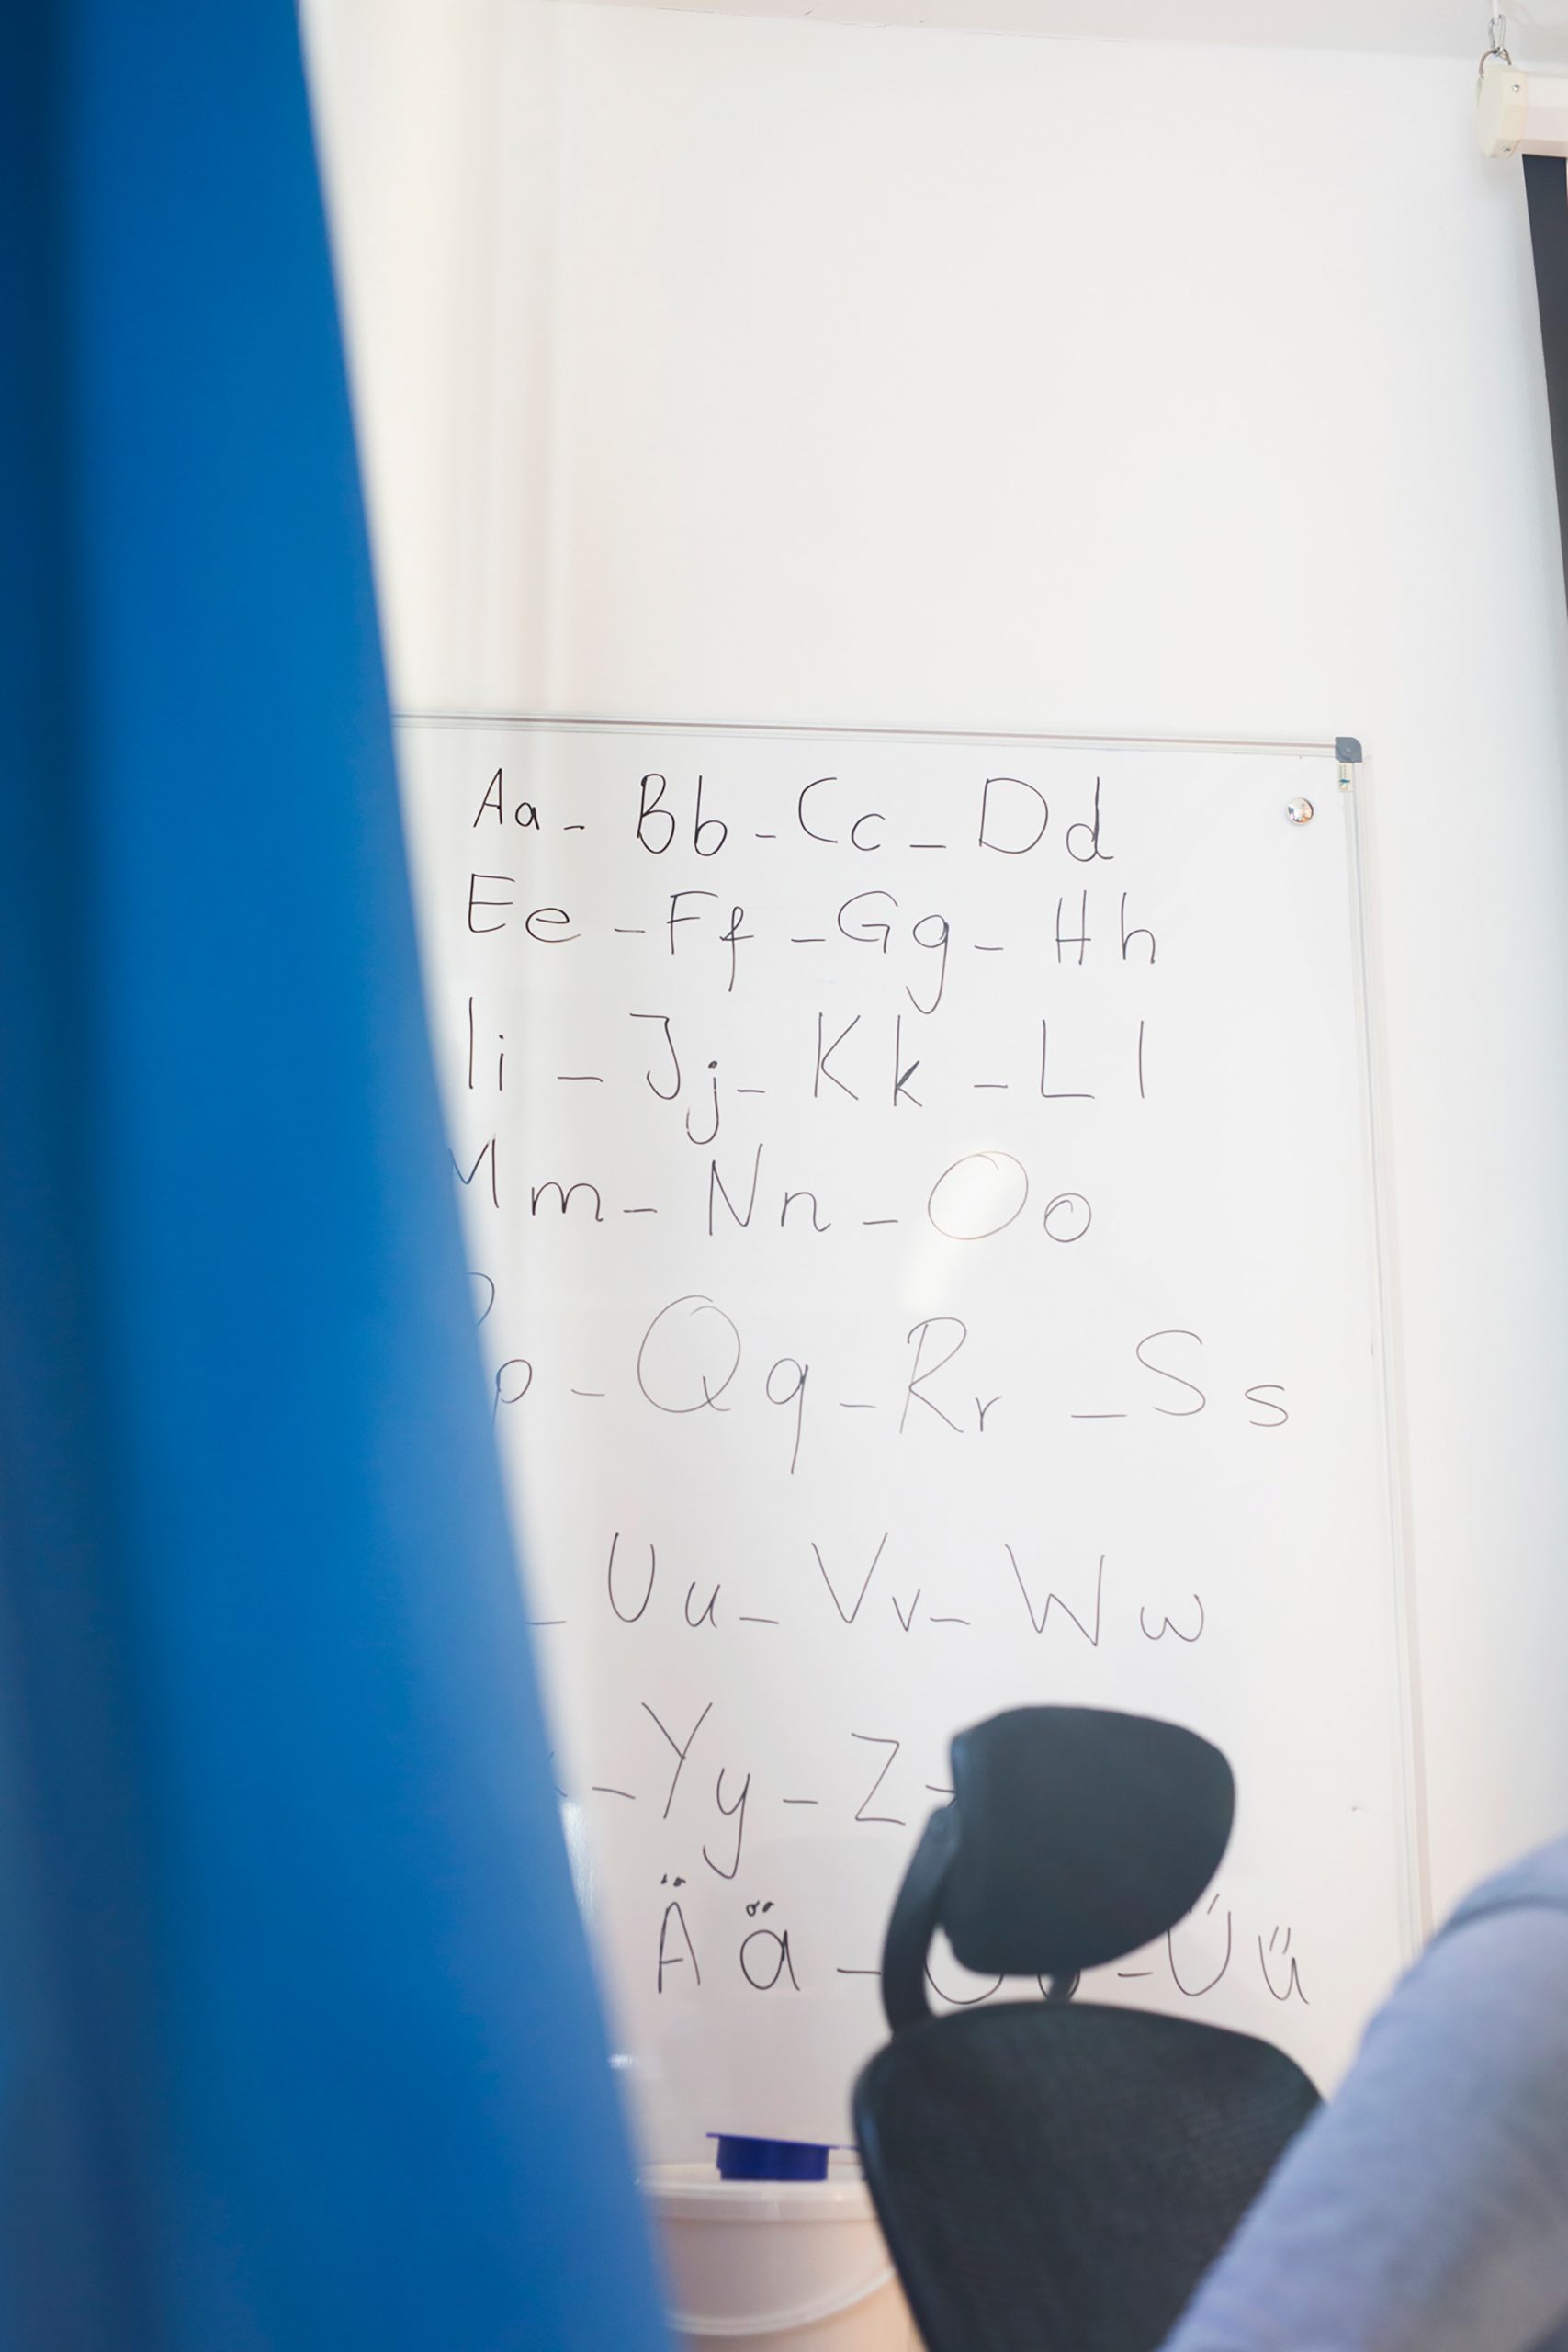 Aa - Bb - Cc - Dd
Ee - Ff - Gg - Hh
Ii - Jj - Kk - Ll
Mm - Nn - Oo
p - Qq - Rr - Ss
- Uu - Vv - Ww
- Yy - Z -
Ää - - Üü